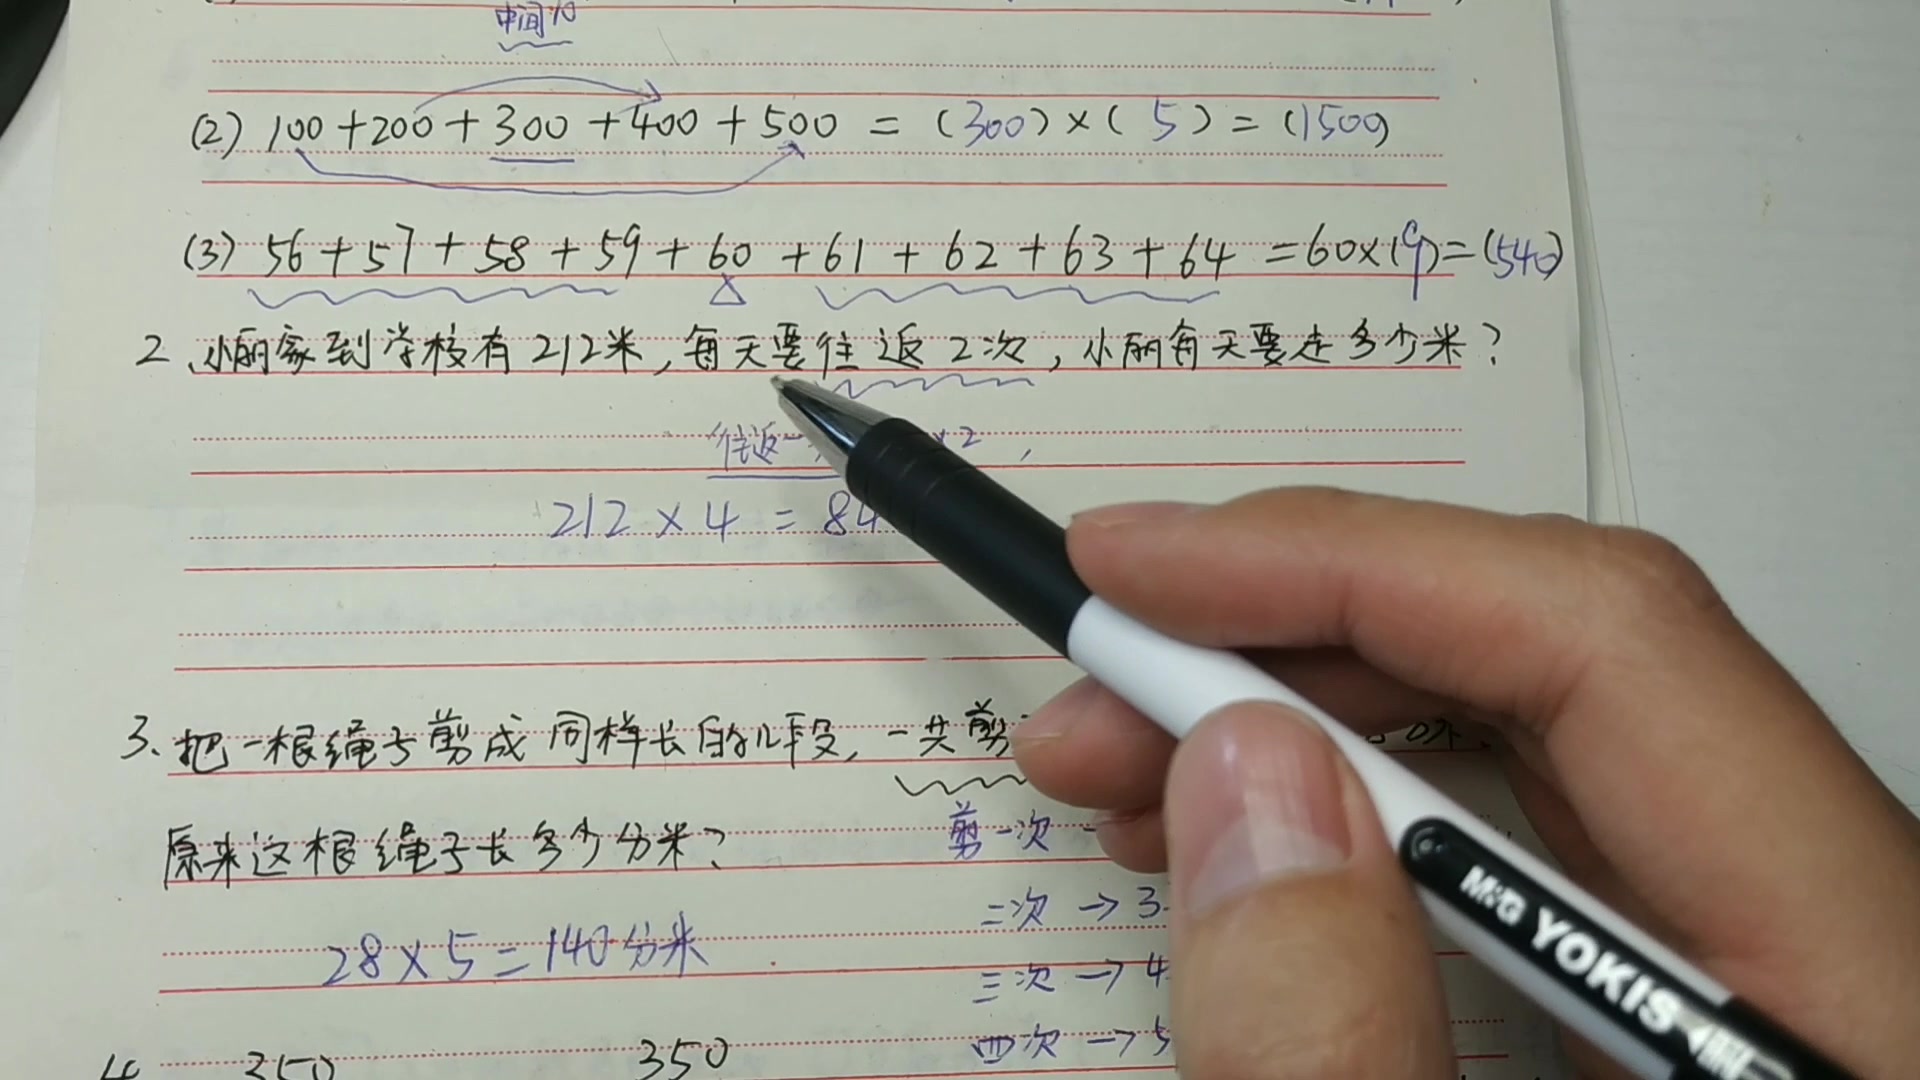 中间
(2) 100+200+300+400+500 = (300)×( 5 ) = (1500)
(3) 56+57+58+59+60+61+62+63+64 =60×(9)=(540)
2、小丽家到学校有212米,每天要往返2次,小丽每天要走多少米?
往返一 ×2,
212×4=84
3、把一根绳子剪成同样长的几段,一共剪
原来这根绳子长多少分米?
剪一次
二次→3
28×5=140分米
三次→4
四次→5
4 350 350
M&G YOKIS